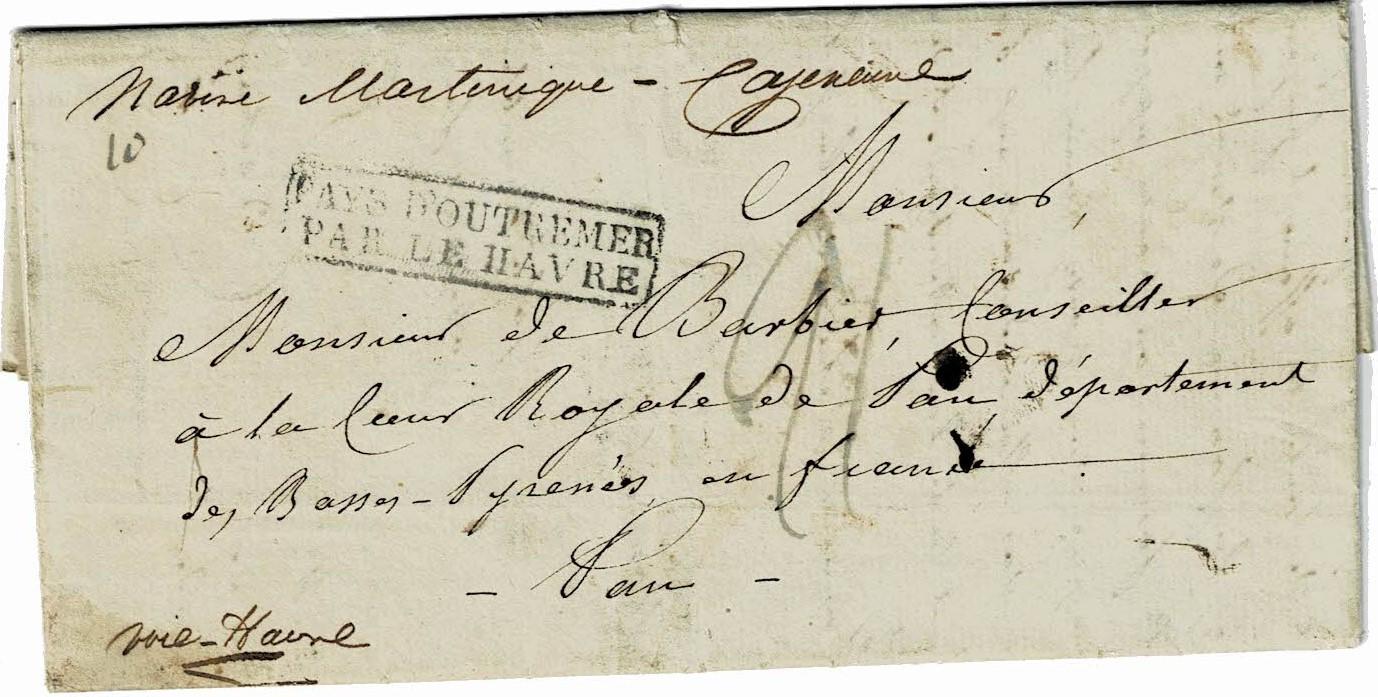 Navire Martinique - Cayenne
10
Monsieur,
PAYS D'OUTREMER
PAR LE HAVRE
Monsieur de Barbier, Conseiller
à la Cour Royale de Pau, département
des Basses-Pyrénées, en france
- Pau -
voie-Havre